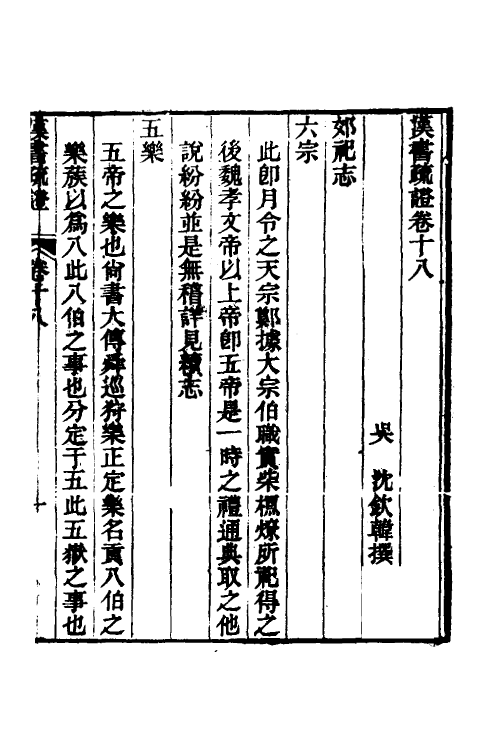 漢書疏證卷十八
吳 沈欽韓撰
郊祀志
六宗
此卽月令之天宗鄭據大宗伯職實柴槱燎所祀得之
後魏孝文帝以上帝卽五帝是一時之禮通典取之他
說紛紛並是無稽詳見續志
五樂
五帝之樂也尙書大傳舜巡狩樂正定樂名貢八伯之
樂族以爲八此八伯之事也分定于五此五嶽之事也
漢書疏證 卷十八 一